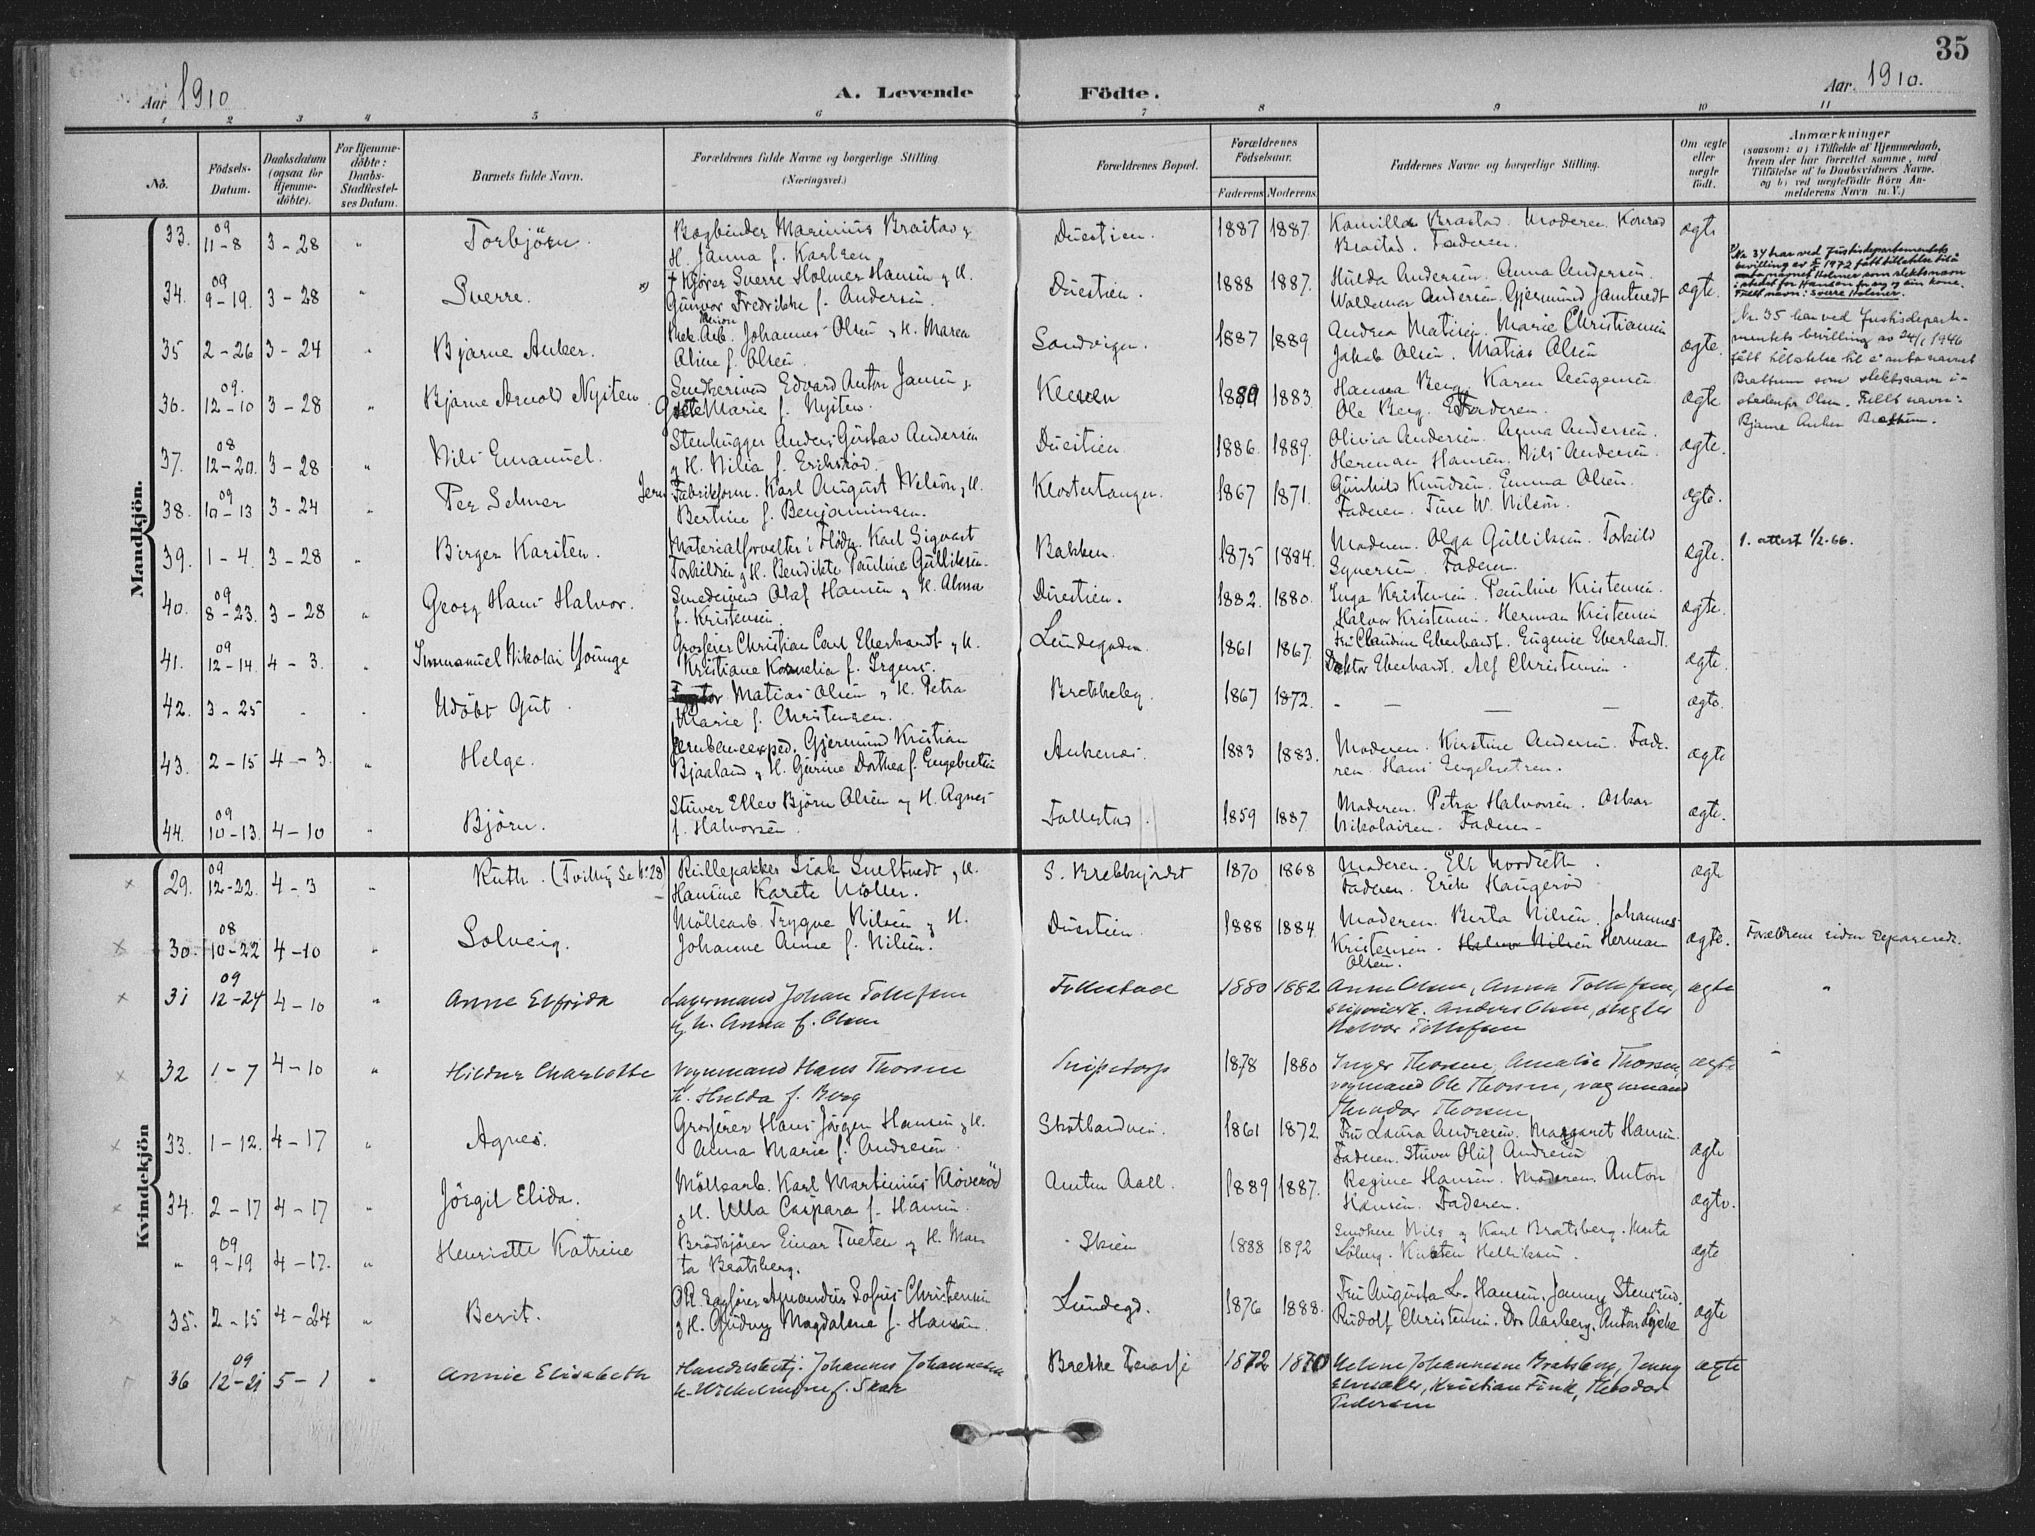 35
Aar 1910
A. Levende Födte.
Aar. 1910.
1 2 3 4 5 6 7 8 9 10 11
No.
Födsels-Datum.
Daabsdatum (ogsaa for Hjemme-döbte).
For Hjemme-döbte: Daabs-Stadfæstel-ses Datum.
Barnets fulde Navn.
Forældrenes fulde Navne og borgerlige Stilling
(Næringsvei.)
Forældrenes Bopæl.
Forældrenes Födselsaar.
Faderens Moderens
Faddernes Navne og borgerlige Stilling.
Om ægte eller uægte födt.
Anmærkninger
(saasom: a) i Tilfælde af Hjemmedaab, hvem der har forrettet samme, med Tilföielse af to Daabsvidners Navne. og b) ved uægtefödte Börn An-melderens Navn m. V.)
Mandkjön.
33. 09 11-8 3-28 " Torbjörn. Bogbinder Marinius Braatas &
H. Janna f. Karlsen
Duestien. 1887 1887 Kamilla Braatad. Moderen. Konrad
Braatad. Faderen. ægte
34. 09 9-19. 3-28 " Sverre. x) + Kjører Sverre Holmer Hansen & H.
Gunvor Fredrikke f. Andersen.
Duestien. 1888 1887. Hulda Andersen. Anna Andersen.
Valdemar Andersen. Gjermund Jamtvedt ægte.
Nr. 34 har ved Justisdepartementets
bevilling av 1972 fått tillatelse til å
anta navnet Holmer som slektsnavn
i stedet for Hansen for seg og sin kone.
Fullt navn: Sverre Holmer.
35 2-26 3-24 " Bjarne Anker. Mek. Arb. Johannes Olsen & H. Maren
Aline f. Olsen
1887 1889 Andrea Matisen. Marie Christiansen
Jakob Olsen. Matias Olsen ægte.
Nr. 35 har ved Justisdepart-
mentets bevilling av 24/1 1946
fått tillatelse til å anta navnet
Brattum som slektsnavn i-
stedenfor Olsen. Fullt navn:
Bjarne Anker Brattum.
36. 09. 12-10 3-28 " Bjarne Arnold Nysten Smedsvend Edvard Anton Jansen &
Marie f. Nysten.
Kleven 1889 1883. Hanna Berg. Karen Jörgensen
Ole Berg. Faderen. ægte
37. 08 12-20. 3-28 " Nils Emanuel. Stenhugger Anders Gustav Andersen
& H. Nilia f. Eriksröd.
Duestien 1886. 1889. Olivia Andersen. Anna Andersen.
Herman Hansen. Nils Andersen. ægte.
38. 09 10-13 3-24 " Per Selmer Jern Fabrikform. Karl August Nilson & H.
Bertine f. Benjaminsen.
Klostertangen. 1867 1871. Gunhild Knudsen. Emma Olsen.
Faderen. Ture W. Nilson. ægte.
39. 1-4. 3-28 " Birger Karsten. Materialforvalter i Karl Sigvart
Torkildsen & H. Bendikte Pauline Gulliksen.
Bakken. 1875 1884. Moderen. Olga Gulliksen. Torkild
Syversen. Faderen. ægte. 1. attest 1/2-66.
40. 09 8-23. 3-28 " Georg Hans Halvor. Smedsvend Olaf Hansen & H. Alma
f. Kristensen.
Duestien. 1882. 1880. Inga Kristensen. Pauline Kristensen.
Halvor Kristensen. Herman Kristensen ægte.
41. 09 12-14. 4-3. " Immanuel Nikolai Younge Grosserer Christian Carl Eberhardt & H.
Kristiane Kornelia f. Irgens.
Lundegaden. 1861 1867. Fru Claudine Eberhardt. Eugenie Eberhardt.
Doktor Eberhardt. Alf Christensen. ægte.
42. 3-25 - - Udöbt Gut. Matias Olsen & H. Petra
Marie f. Christensen.
Brekkeby. 1867 1872. - — — — ægte.
43. 2-15 4-3. " Helge. Jernbaneexped. Gjermund Kristian
Bjaaland & H. Gurine Dorthea f. Engebretsen
1883 1883. Moderen. Kirstine Andersen. Fade-
ren. Hans Engebretsen. ægte
44. 09 10-13. 4-10 " Björn. Stuver Ellev Björn Olsen og H. Agnes
f. Halvorsen.
Follestad. 1859 1887 Moderen. Petra Halvorsen. Oskar
Nikolaisen. Faderen. ægte.
Kvindekjön
29. 09 12-22. 4-3 " Ruth. (Tvilling Se No 28) Rullepakker Isak Smeltvedt & H.
Hansine Karete Möller.
1870 1868 Moderen. Els Nordseth.
Faderen. Erik Haugeröd ægte
30. 08 10-22 4-10 " Solveig. Möllearb. Trygve Nilsen & H.
Johanne Anne f. Nilsen.
Duestien 1888 1884. Moderen. Berta Nilsen. Johannes
Kristensen. Halvor Nilsen Herman
Olsen. ægte. Forældrene siden separerede.
31 09 12-24 4-10 " Anne Elfrida Lagermand Johan Tollefsen
og h. Anna f. Olsen
Follestad 1880 1882 Anne Olsen, Anna Tollefsen,
Anders Olsen,
Halvor Tollefsen ægte "
32 1-7 4-10 " Hildur Charlotte Vognmand Hans Thorsen
h. Hulda f. Berg
Snipetorp 1878 1880 Inger Thorsen, Amalie Thorsen,
vognmand Ole Thorsen, vognmand
Theodor Thorsen ægte
33. 1-12. 4-17 " Agnes. Grosserer Hans Jörgen Hansen & H.
Anna Marie f. Andresen
1861 1872 Fru Laura Andresen. Margaret Hansen.
Faderen. Stuver Oluf Andresen ægte
34. 2-17 4-17 " Jörgil Elida. Möllearb. Karl Martinius Klöveröd
& H. Ulla Caspara f. Hansen.
Amtm Aall. 1889 1887. Regine Hansen. Moderen. Anton
Hansen. Faderen. ægte.
" 09 9-19 4-17. " Henriette Katrine Brödkjörer Einar Tveten og H. Mar-
ta Bratsberg.
Skien 1888 1892 Smedkere Nils & Karl Bratsberg. Marta
Löberg. Helliksen. ægte
35. 2-15 4-24 " Berit. O.R. Sagförer Amandus Sofus Christensen
& H. Gudny Magdalene f. Hansen.
Lundegd. 1876 1888. Fru Augusta L. Hansen. Janny Stensrud.
Rudolf Christensen. Dr. Aarberg. Anton Lycke ægte
36 09 12-21 5-1 " Annie Elisabeth Handelsbetj. Johannes Johannesen
h. Wilhelmine f. Skar
Brekke Terasse 1872 1870 Helene Johannesen Bratsberg, Jenny
Kristian Fink, Theodor
Pedersen ægte